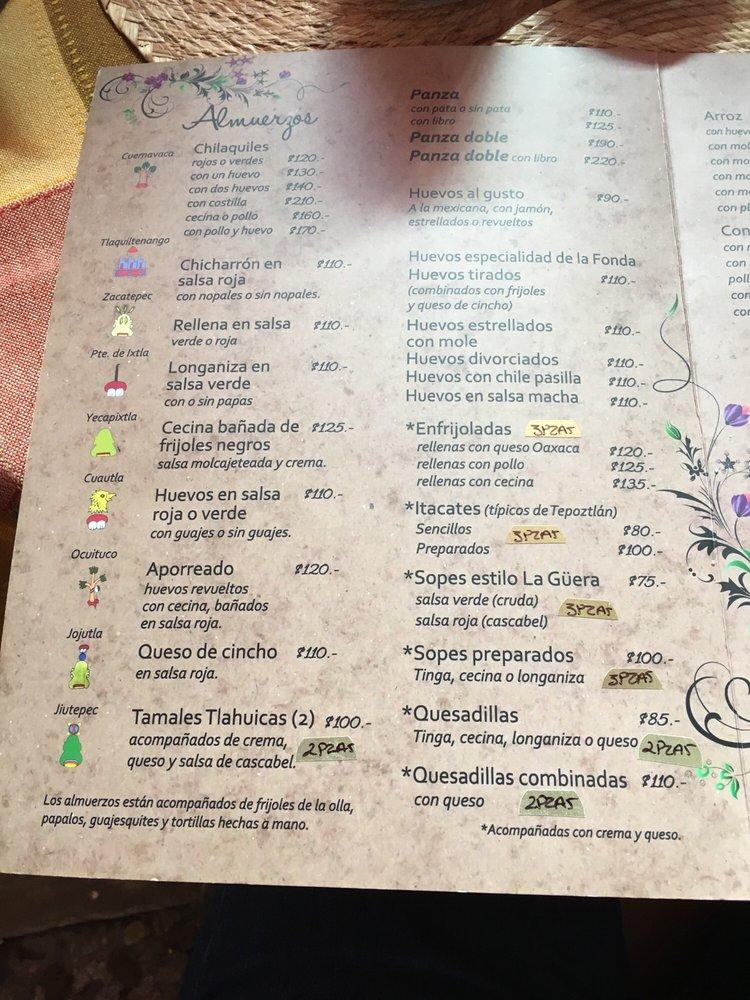 Almuerzos
Cuernavaca
Chilaquiles
rojos o verdes $120.-
con un huevo $130.-
con dos huevos $140.-
con costilla $210.-
cecina o pollo $160.-
con pollo y huevo $170.-
Tlaquiltenango
Chicharrón en $110.-
salsa roja
con nopales o sin nopales.
Zacatepec
Rellena en salsa $110.-
verde o roja
Pte. de Ixtla
Longaniza en $110.-
salsa verde
con o sin papas
Yecapixtla
Cecina bañada de $125.-
frijoles negros
salsa molcajeteada y crema.
Cuautla
Huevos en salsa $110.-
roja o verde
con guajes o sin guajes.
Ocuituco
Aporreado $120.-
huevos revueltos
con cecina, bañados
en salsa roja.
Jojutla
Queso de cincho $110.-
en salsa roja.
Jiutepec
Tamales Tlahuicas (2) $100.-
acompañados de crema,
queso y salsa de cascabel. 2PZAS
Los almuerzos están acompañados de frijoles de la olla,
papalos, guajesquites y tortillas hechas a mano.
Panza
con pata o sin pata $110.-
con libro $125.-
Panza doble $190.-
Panza doble con libro $220.-
Huevos al gusto $90.-
A la mexicana, con jamón,
estrellados o revueltos
Huevos especialidad de la Fonda
Huevos tirados $110.-
(combinados con frijoles
y queso de cincho)
Huevos estrellados $110.-
con mole
Huevos divorciados $110.-
Huevos con chile pasilla $110.-
Huevos en salsa macha $110.-
*Enfrijoladas 3PZAS
rellenas con queso Oaxaca $120.-
rellenas con pollo $125.-
rellenas con cecina $135.-
*Itacates (típicos de Tepoztlán)
Sencillos 3PZAS $80.-
Preparados $100.-
*Sopes estilo La Güera $75.-
salsa verde (cruda) 3PZAS
salsa roja (cascabel)
*Sopes preparados $100.-
Tinga, cecina o longaniza 3PZAS
*Quesadillas $85.-
Tinga, cecina, longaniza o queso 2PZAS
*Quesadillas combinadas $110.-
con queso 2PZAS
*Acompañadas con crema y queso.
Arroz
con huev
con mol
con mo
con m
con m
con pl
Con
con
con
poll
con
con